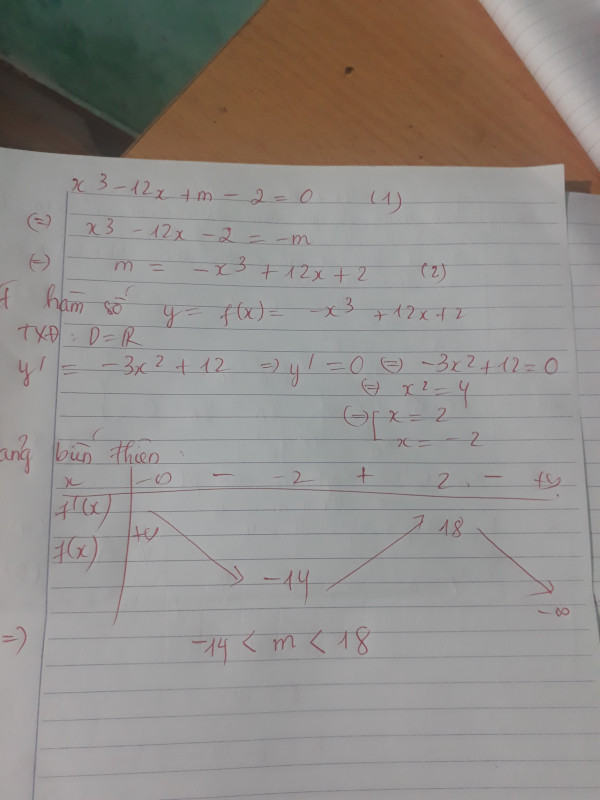 x³ - 12x + m - 2 = 0 (1)
(=) x³ - 12x - 2 = -m
(=) m = -x³ + 12x + 2 (2)
hàm số y = f(x) = -x³ + 12x + 2
TXĐ : D = R
y' = -3x² + 12 => y' = 0 (=) -3x² + 12 = 0
(=) x² = 4
(=) [ x = 2
x = -2
biến thiên :
x -∞ - -2 + 2 - +∞
f'(x)
18
f(x) +∞
-14
-∞
=) -14 < m < 18